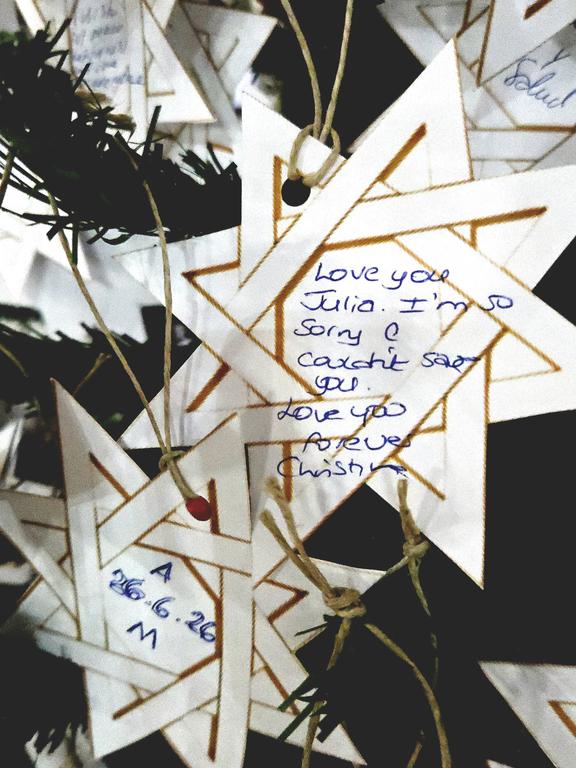 Salud
Love you
Julia. I'm so
Sorry I
couldn't save
you.
Love you
forever
Christine
A
26.6.26
M